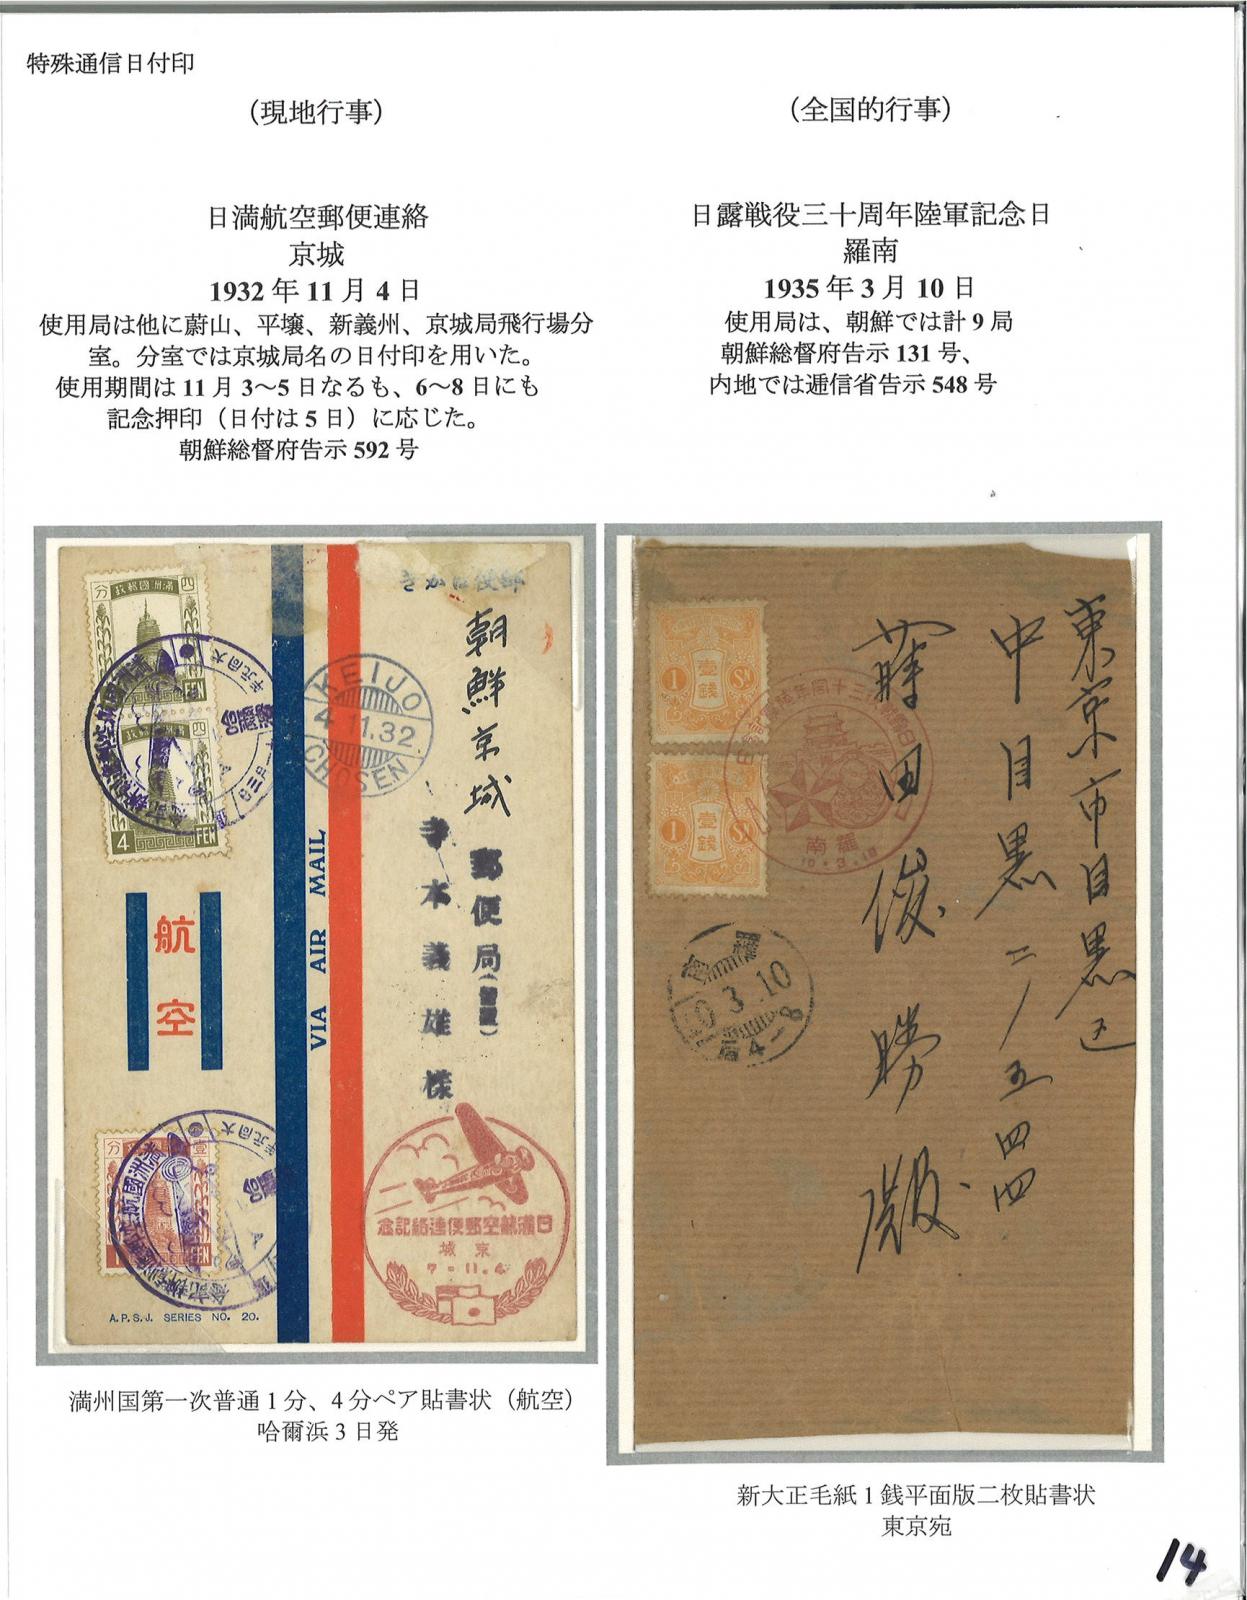 特殊通信日付印
（現地行事）
日満航空郵便連絡
京城
1932 年 11 月 4 日
使用局は他に蔚山、平壌、新義州、京城局飛行場分
室。分室では京城局名の日付印を用いた。
使用期間は 11 月 3～5 日なるも、6～8 日にも
記念押印（日付は 5 日）に応じた。
朝鮮総督府告示 592 号
（全国的行事）
日露戦役三十周年陸軍記念日
羅南
1935 年 3 月 10 日
使用局は、朝鮮では計 9 局
朝鮮総督府告示 131 号、
内地では逓信省告示 548 号
郵便はがき
朝鮮京城
郵便局
寺本義雄様
満洲國郵政
四分
4 FEN
KEIJO
4.11.32
CHOSEN
VIA AIR MAIL
航空
日滿航空郵便連絡記念
京城
7.11.4
A.P.S.J. SERIES NO. 20.
満州国第一次普通 1 分、4 分ペア貼書状（航空）
哈爾浜 3 日発
東京市目黒区
中目黒二ノ五四四
壹銭
1 Sn
壹銭
1 Sn
羅南
10.3.10
10.3.10
新大正毛紙 1 銭平面版二枚貼書状
東京宛
14